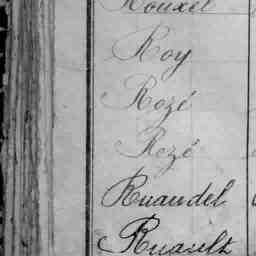 Rouxel
Roy
Rozé
Rozé
Ruaudel
Ruault